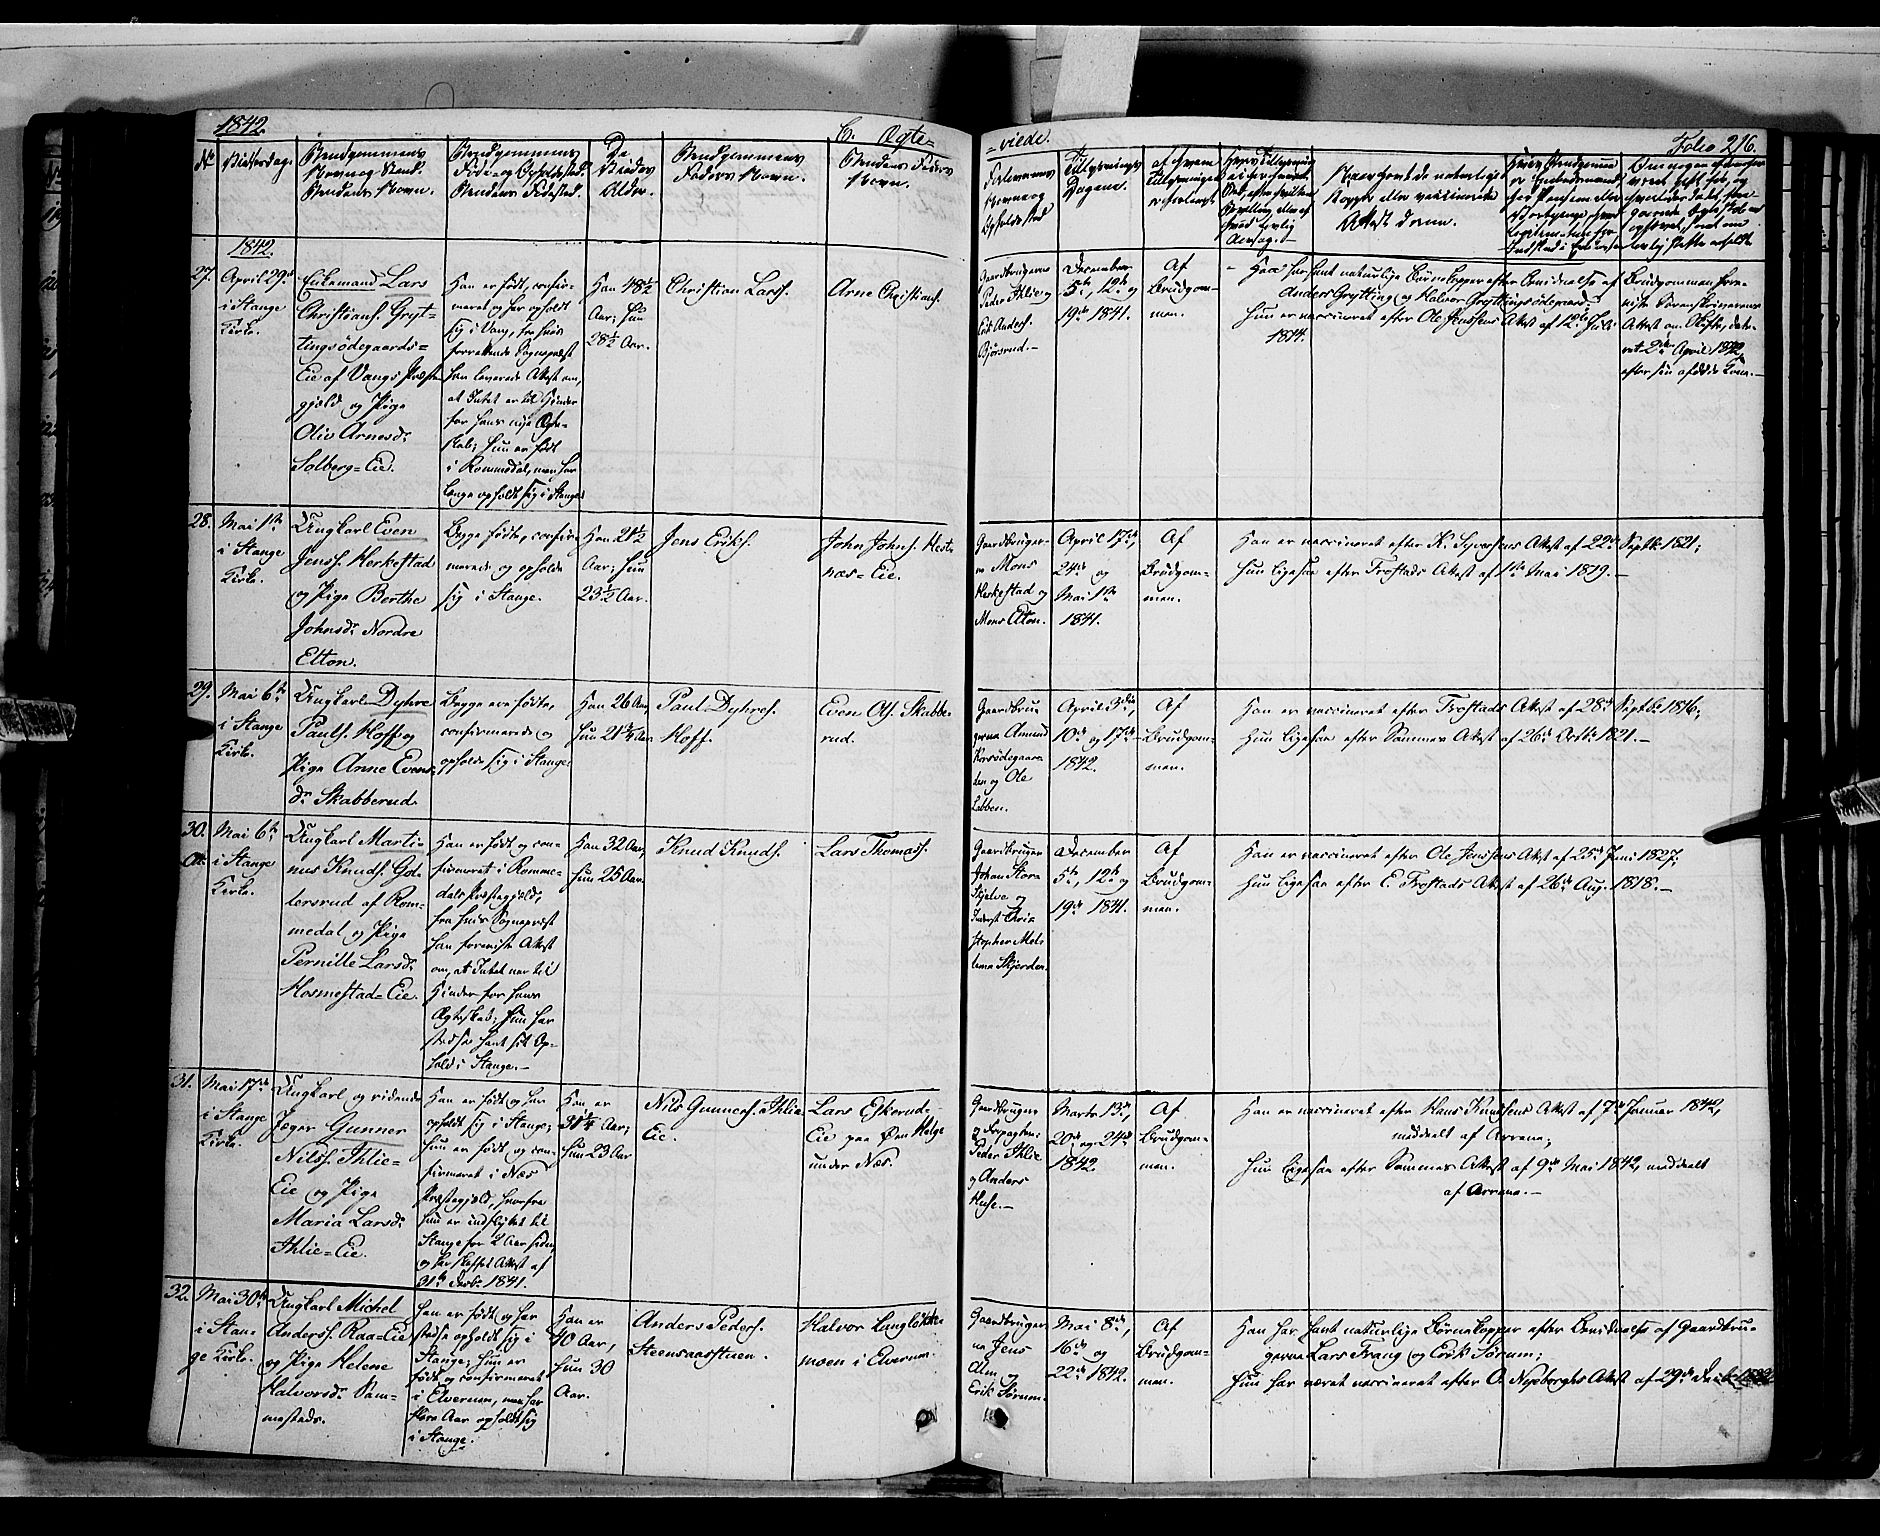 1842.
C. Ægte-
=viede.
Folio 216.
No
Vielsesdag.
Brudgommens
Navn og Stand.
Brudens Navn.
Brudgommens
Føde- og Opholdssted.
Brudens Fødested.
De
Viedes
Alder.
Brudgommens
Faders Navn.
Brudens Faders
Navn.
Forlovernes
Navne og
Opholdssted
Tillysnings
Dagene.
af hvem
Tillysningen
er forlangt
1842.
27.
April 29de
i Stange
Kirke.
Enkemand Lars
Christians. Gryt-
tingsødegaards=
Eie af Vangs Præste
gjeld og Pige
Oliv Arnesdr
Solberg=Eie.
Han er født, confir-
meret og har opholdt
sig i Vang, fra hvis
forrettende Sognepræst
han leverede Attest om,
at Intet er til Hinder
for hans nye Ægte-
skab; hun er født
i Rommedal, men har
længe opholdt sig i Stange
Han 48½
Aar; hun
28½ Aar.
Christian Larss.
Arne Christians.
Gaardbrugerne
Peder Ihlie og
Erik Anders.
Bjørsrud.-
December
5te, 12te og
19de 1841.
Af
Brudgom-
men.
- Han har havt naturlige Børnekopper efter Bevidnelse af
Anders Grytting og Halvor Gryttingsødegaard.-
Hun er vaccineret efter Ole Jenssens Attest af 12te Juli
1814.
Brudgommen fore-
viste Sorenskriverens
Attest om Skifte, date-
ret 2den April 1842,
efter sin afdøde Kone.-
28.
Mai 1ste
i Stange
Kirke.
Ungkarl Even
Jenss. Herkestad
og Pige Berthe
Johnsdr Nordre
Etton.
Begge fødte, confir-
merede og opholde
sig i Stange.
Han 21½
Aar; hun
23½ Aar.
Jens Eriks.
John Johns. Hest-
næs=Eie.
Gaardbruger-
ne Mons
Herkestad og
Mons Etton.
April 17de,
24de og
Mai 1ste
1841.
Af
Brudgom-
men.
Han er vaccineret efter K. Syversens Attest af 22de Septbr. 1821;
Hun ligesaa efter Frostads Attest af 1ste Mai 1819.-
29.
Mai 6te
i Stange
Kirke.
Ungkarl Dyhre
Pauls. Hoff og
Pige Anne Evens-
dr Skabberud.
Begge ere fødte,
confirmerede og
opholde sig i Stange.
Han 26 Aar,
hun 21¾ Aar
Paul Dyhres.
Hoff.
Even Ols. Skabbe-
rud.
Gaardbru-
gerne Amund
Korsødegaar-
den og Ole
Labben.
April 3die,
10de og 17de
1842.
Af
Brudgom-
men.
Han er vaccineret efter Frostads Attest af 28de Septbr 1816;
Hun ligesaa efter Sammes Attest af 26de Octbr. 1821.-
30.
Mai 6te
i Stange
Kirke.
Ungkarl Marti-
nus Knuds. Gol-
lersrud af Rom-
medal og Pige
Pernille Larsdr
Hosmestad=Eie.
Han er født og con-
firmeret i Romme-
dals Præstegjeld,
fra hvis Sognepræst
han foreviste Attest
om, at Intet var til
Hinder for hans
Ægteskab; hun har
stedse havt sit Op-
hold i Stange.-
Han 32 Aar,
hun 25 Aar.
Knud Knuds.
Lars Thomass.
Gaardbruger
Johan Store
Skjelve og
Inderst Chri-
stopher Mel-
lem Skjerden.
December
5te, 12te og
19de 1841.
Af
Brudgom-
men.
Han er vaccineret efter Ole Jenssens Attest af 25de Juni 1827;
Hun ligesaa efter E. Frostads Attest af 26de Aug. 1818.-
31.
Mai 17de
i Stange
Kirke.
Ungkarl og ridende
Jæger Gunner
Nilss. Ihlie=
Eie og Pige
Maria Larsdr
Ihlie=Eie.
Han er født og har
opholdt sig i Stange;
hun er født og con-
firmeret i Næs
Præstegjeld, hvorfra
hun er indflyttet til
Stange for 2 Aar siden,
og har skaffet Attest af
31te Decbr 1841.
Han er
31¼ Aar;
hun 23 Aar
Nils Gunners. Ihlie-
Eie.
Lars Eskerud-
Eie paa Øen Helge
under Næs.
Gaardbruger
og Forpagter
Peder Ihlie
og Anders
Huse.-
Marts 13de,
20de og 24de
1842.
Af
Brudgom-
men.
Han er vaccineret efter Hans Knudsens Attest af 7de Januar 1842,
meddeelt af Arrene;
Hun ligesaa efter Sammes Attest af 9de Mai 1842 meddeelt
af Arrene.-
32.
Mai 30te
i Stan-
ge Kirke.
Ungkarl Michel
Anderss. Raa=Eie
og Pige Helene
Halvorsdr Sam-
mesteds.
Han er født og har
stedse opholdt sig i
Stange; hun er
født og confirmeret
i Elverum, men har
flere Aar opholdt sig
i Stange.
Han er
40 Aar,
hun 30
Aar.
Anders Peders.
Steensaasstuen.
Halvor Lungløkke-
moen i Elverum.
Gaardbruger-
ne Jens
Alm og
Erik Sørum.
Mai 8de,
16de og
22de 1842.
Af
Brudgom-
men.
Han har havt naturlige Børnekopper efter Bevidnelse af Gaardbru-
gerne Lars Frang og Erik Sørum;
Hun har været vaccineret efter O. Nyeborghs Attest af 29de